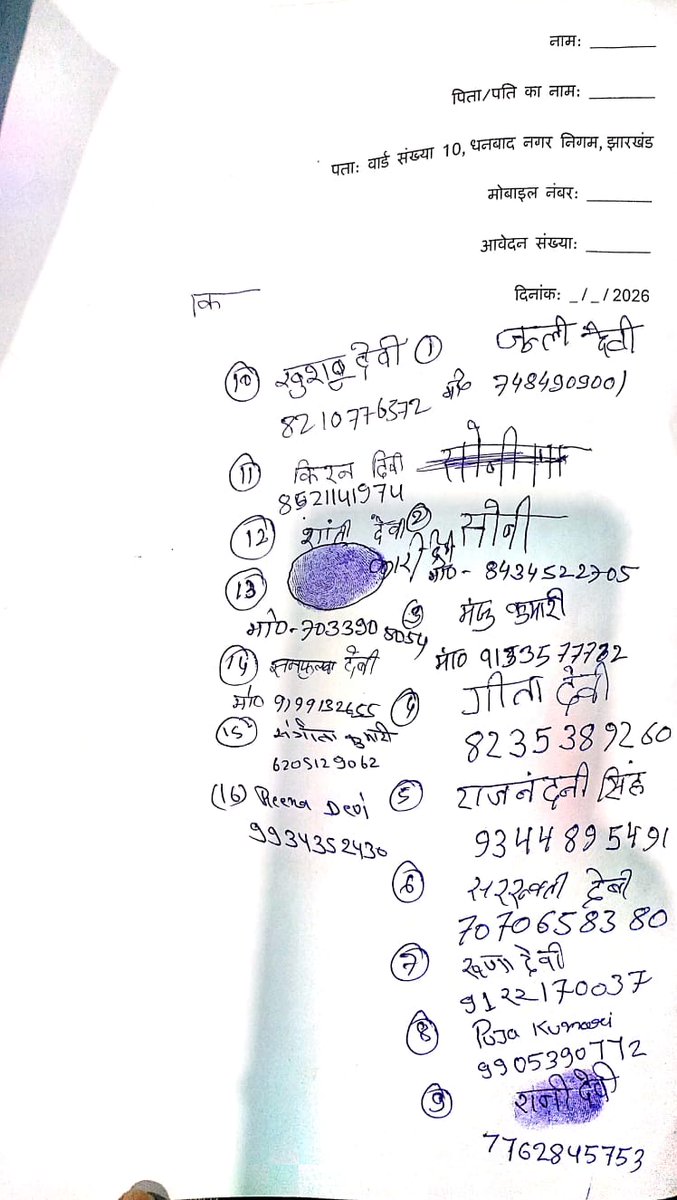 नाम: ________
पिता/पति का नाम: ________
पता: वार्ड संख्या 10, धनबाद नगर निगम, झारखंड
मोबाइल नंबर: ________
आवेदन संख्या: ________
दिनांक: _/_/2026
कि
① जुली देवी
मो० 7484909001
② सोनी
मो०- 8434522705
③ मंजु कुमारी
मो०
④ गीता देवी
8235389260
⑤ राजनंदनी सिंह
9344895491
⑥ सरस्वती देवी
7070658380
⑦ देवी
9122170037
⑧ Puja Kumari
9905390772
⑨ रानी देवी
7762845753
⑩ खुशबू देवी
8210776372
⑪ किरन देवी
8521141974
⑫ शांती देवी
⑬
मो०-7033908054
⑭ देवी
मो० 9199132655
⑮ संगीता कुमारी
6205129062
(16) Reena Devi
9934352430